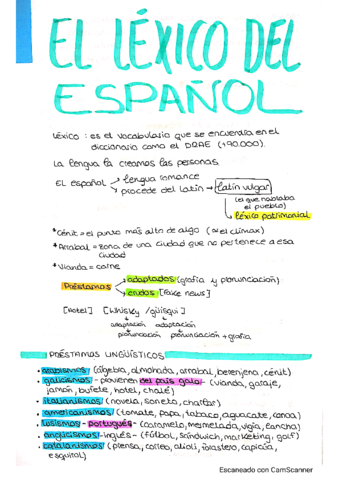 EL LÉXICO DEL
ESPAÑOL
Léxico: es el vocabulario que se encuentra en el
diccionario como el DRAE (190.000).
La lengua la creamos las personas.
EL español → lengua romance
→ procede del latín → latín vulgar
(el que hablaba
el pueblo)
léxico patrimonial
*Cénit = el punto más alto de algo (≈ el clímax)
*Arrabal = zona de una ciudad que no pertenece a esa
ciudad
*Vianda = carne
Préstamos → adaptados (grafía y pronunciación)
→ crudos [fake news]
[Hotel] [Whisky / güisqui]
adaptación adaptación
pronunciación pronunciación + grafía
PRÉSTAMOS LINGÜÍSTICOS
• arabismos (álgebra, almohada, arrabal, berenjena, cénit)
• galicismos - provienen del país galo - (vianda, garaje,
jamón, bufete, hotel, chalé)
• italianismos (novela, soneto, chatear)
• americanismos (tomate, papa, tabaco, aguacate, canoa)
• lusismos - portugués - (caramelo, mermelada, vigía, lancha)
• anglicismos - inglés - (fútbol, sándwich, marketing, golf)
• catalanismos (prensa, correo, alioli, forastero, capicúa,
esquirol)
Escaneado con CamScanner